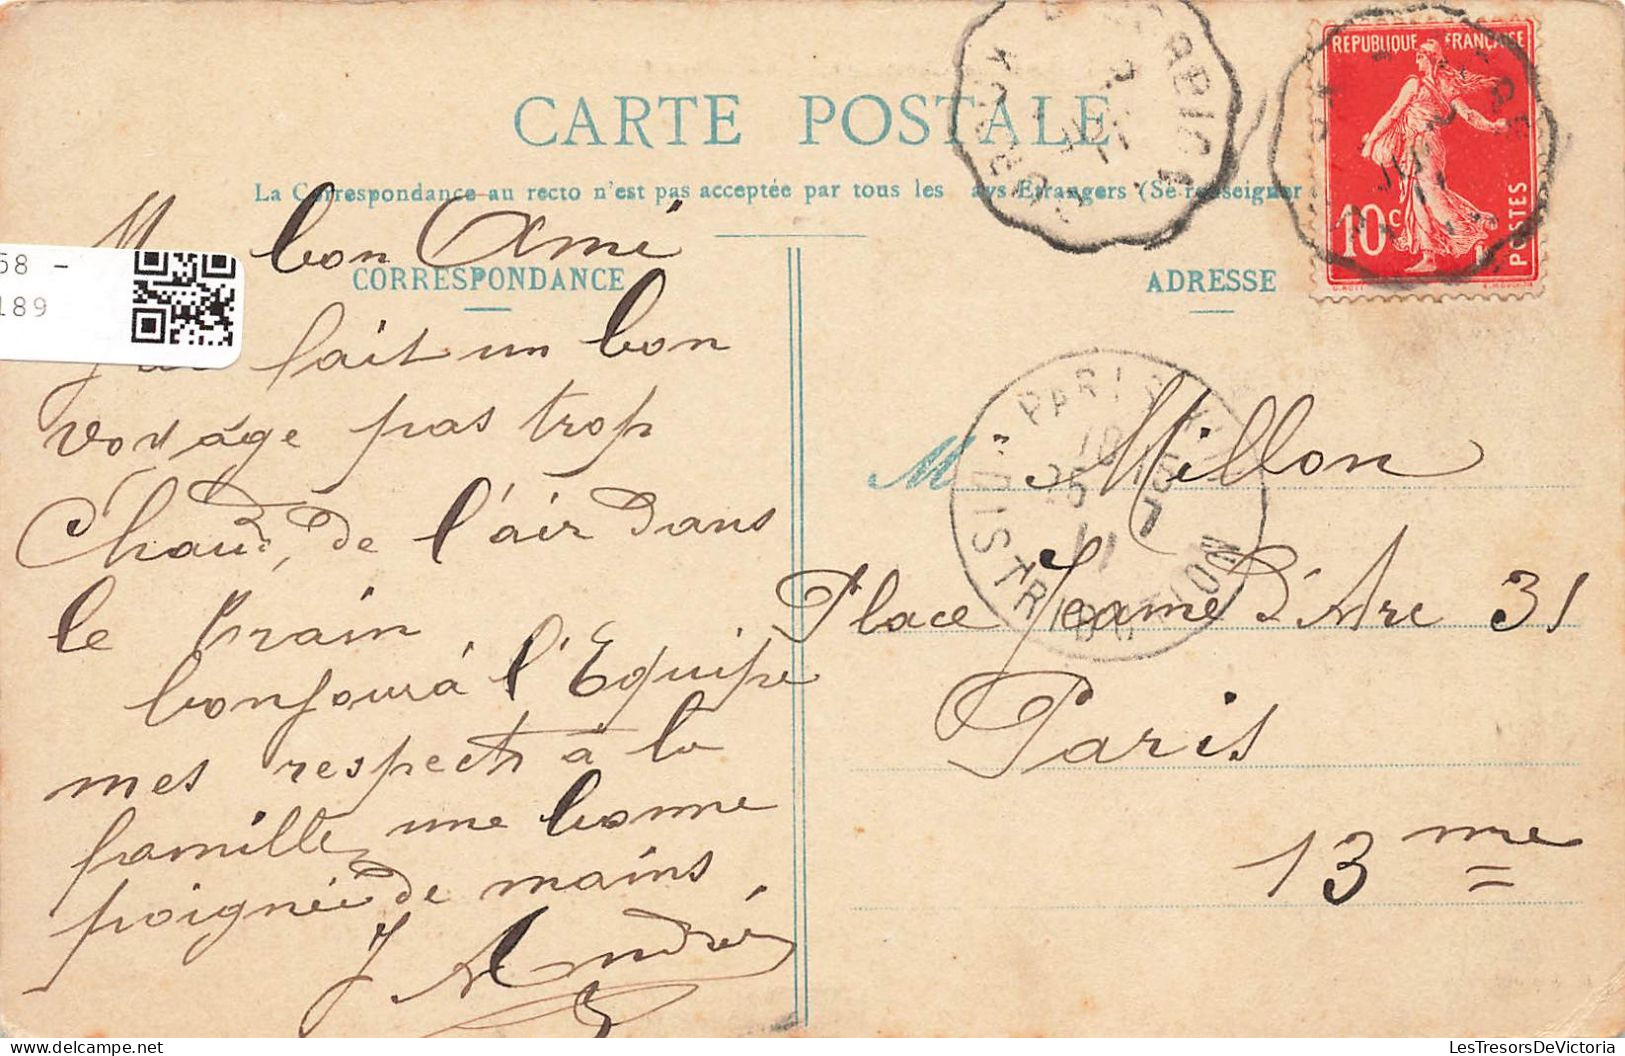 CARTE POSTALE
La Correspondance au recto n'est pas acceptée par tous les ays Etrangers (Se renseigner
REPUBLIQUE FRANÇAISE
10c
POSTES
58 -
189
CORRESPONDANCE
ADRESSE
bon Ami
fait un bon
voyage pas trop
Chaud, de l'air dans
le train
bonjour à l'Equipe
mes respects à la
famille une bonne
poignée de mains
J André
PARIS
DISTRIBUTION
M Millon
Place Jeanne d'Arc 31
Paris
13me
LesTresorsDeVictoria